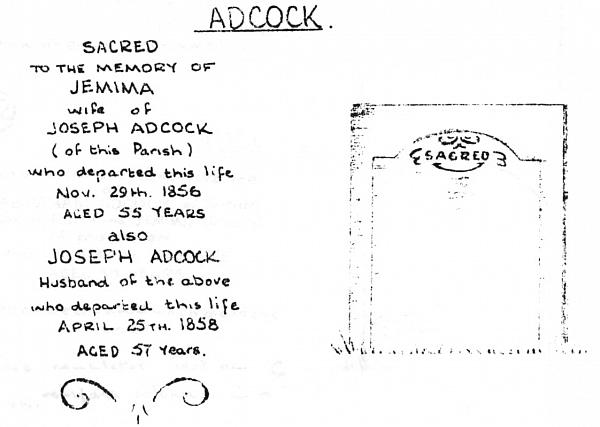 ADCOCK.
SACRED
TO THE MEMORY OF
JEMIMA
wife of
JOSEPH ADCOCK
(of this Parish)
who departed this life
Nov. 29th. 1856
AGED 55 YEARS
also
JOSEPH ADCOCK
Husband of the above
who departed this life
APRIL 25TH. 1858
AGED 57 Years.
SACRED